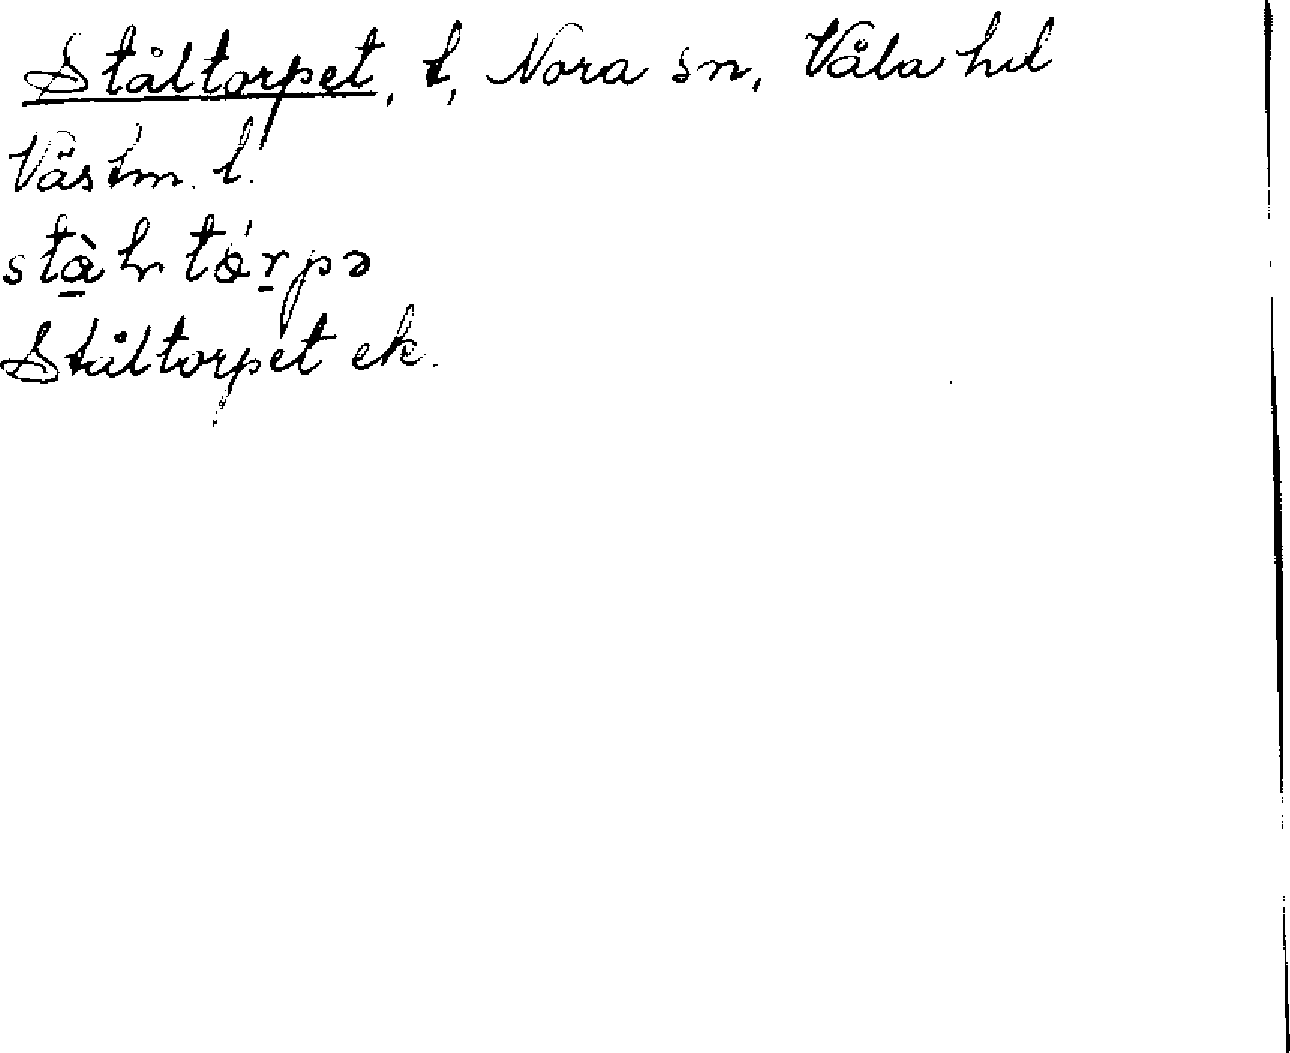 Ståltorpet, t, Nora sn, Våla hd
Västm. l.
Ståltorpet ek.